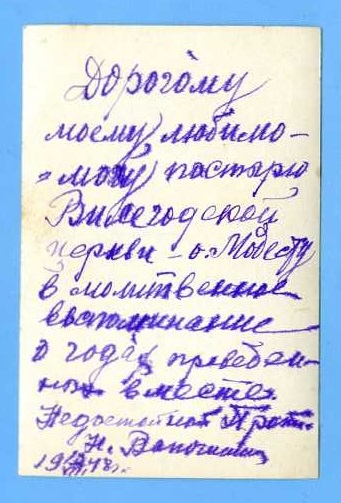 Дорогому
моему любимо-
му пастырю
Вилегодской
церкви – о. Модесту
в молитвенное
воспоминание
о годах проведен-
ных вместе.
Недостойный Прот.
Н.
1948г.